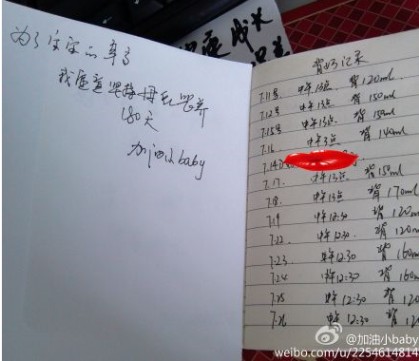 为了宝宝的幸福
我愿意坚持母乳喂养
180天
加油小baby
背奶记录
7.11号 中午13点 背120ml
7.12号 中午13点 背150ml
7.15号 中午13点 背150ml
7.16 中午3点 背140ml
7.17. 中午13点 背150ml
7.18. 中午13点 背170ml
7.19 中午12:30 背120ml
7.22. 中午12:30 背120m
7.23 中午12:30 背160m
7.24 中午12:30 背160m
7.25 中午12:30 背
7.26 中午12:30 背
@加油小baby
weibo.com/u/2254614814